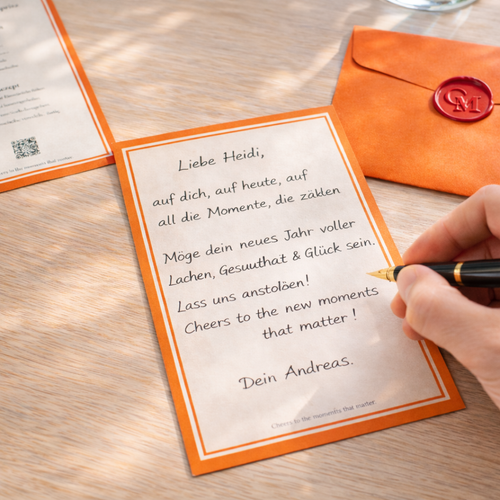 Liebe Heidi,
auf dich, auf heute, auf
all die Momente, die zäklen
Möge dein neues Jahr voller
Lachen, Gesuuthat & Glück sein.
Lass uns anstolöen!
Cheers to the new moments
that matter !
Dein Andreas.
Cheers to the moments that matter
OM